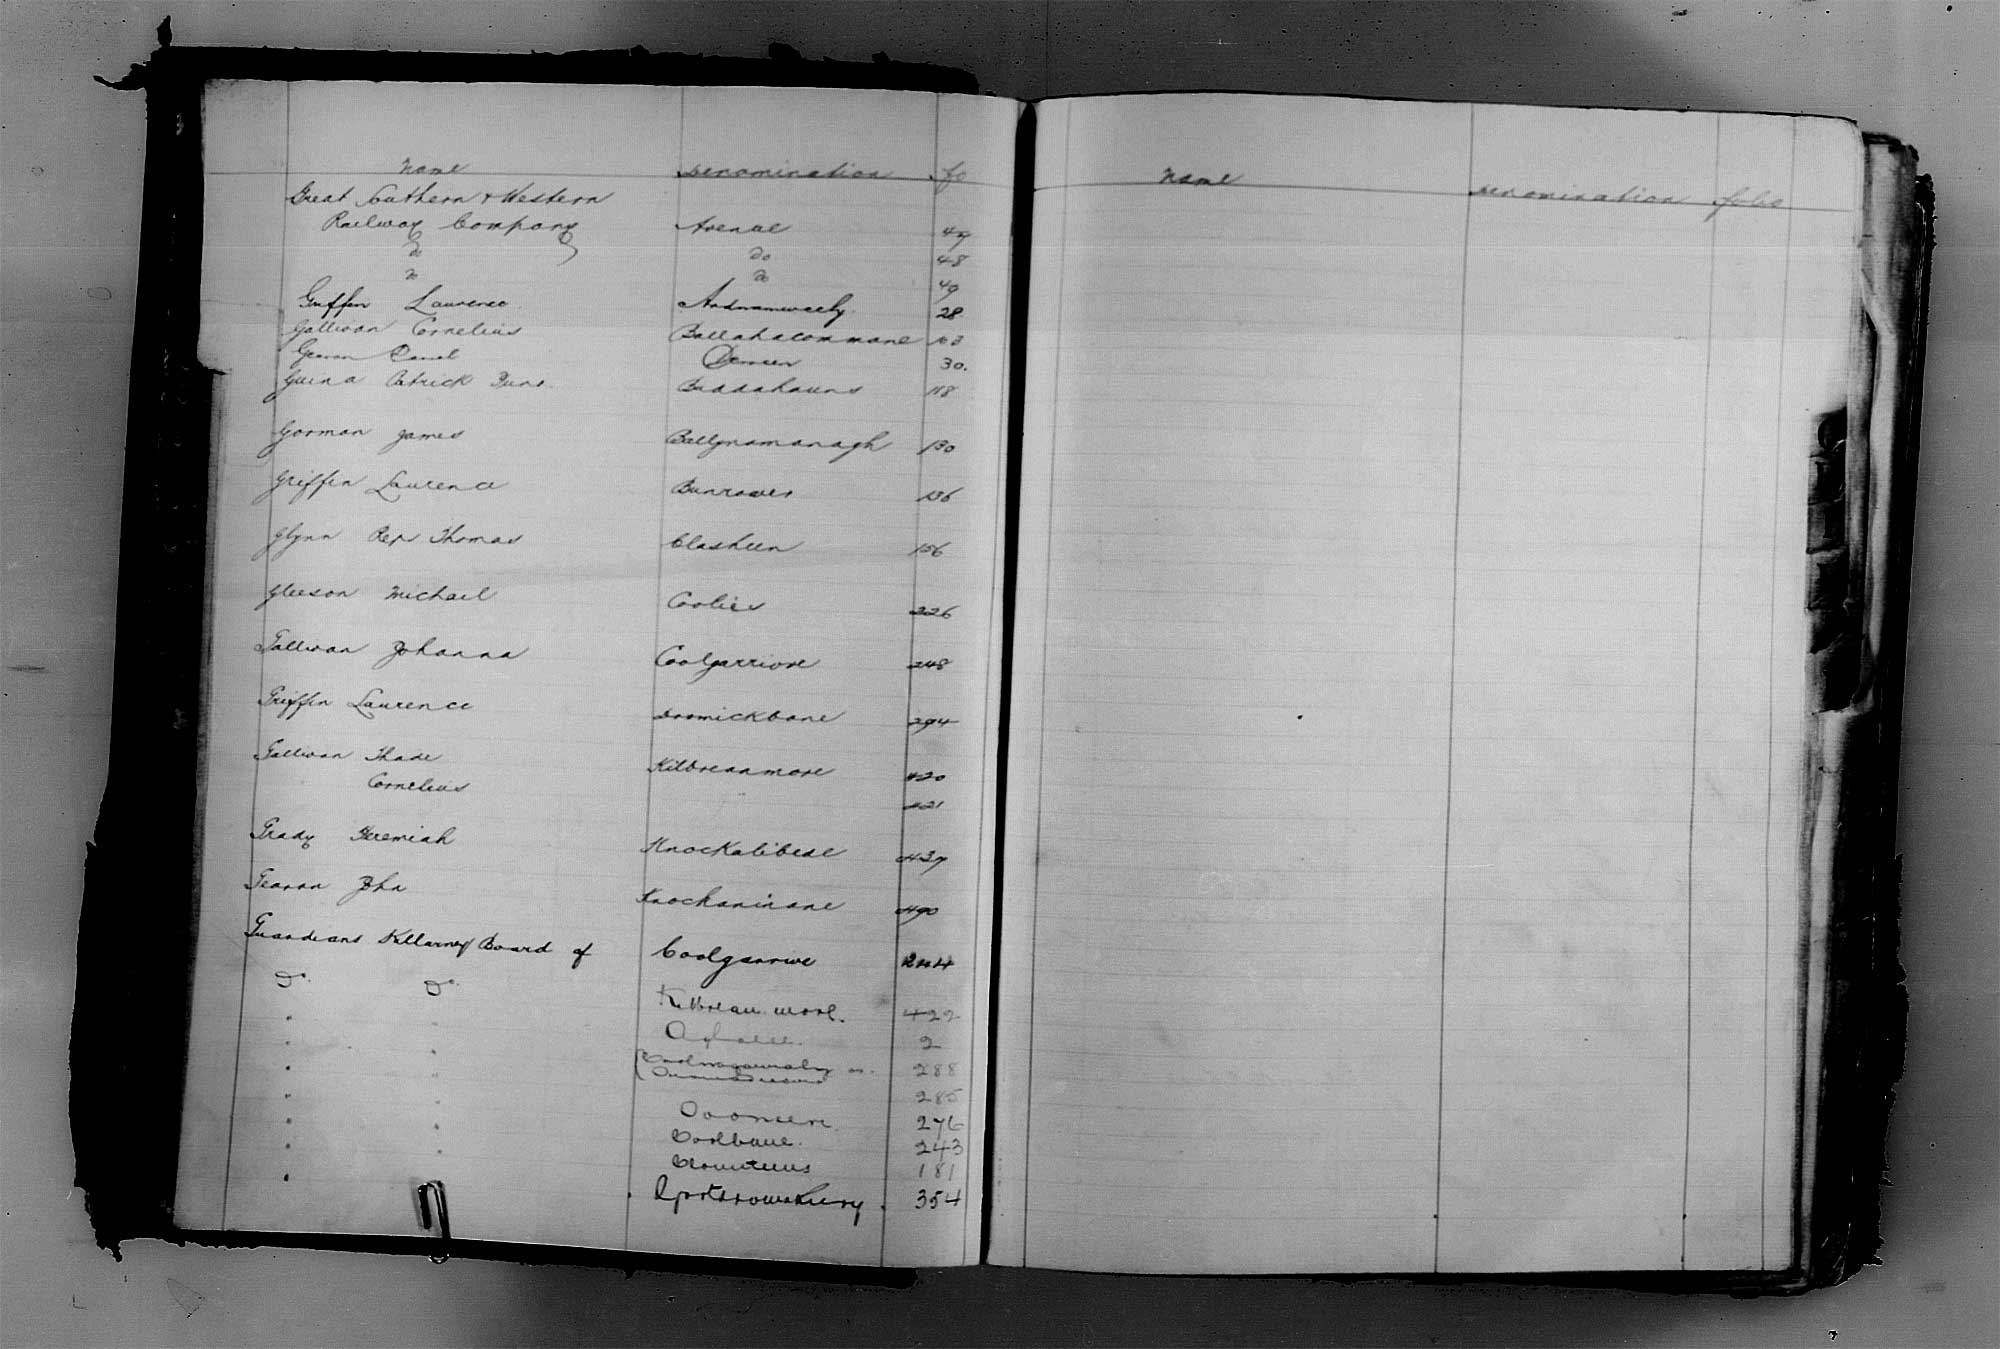 Name Denomination fo
Great Southern & Western
Railway Company Avenue 47
Do Do 48
Do Do 49
Griffin Laurence Ardnamweely 28
Galliwan Cornelius Ballahacommane 103
Geavan Daniel Derreen 30.
Guina Patrick Junr. Buddahauns 118
Gorman James Ballynamanagh 130
Griffin Laurence Bunrower 136
Glynn Reps Thomas Clasheen 156
Gleeson Michael Coolies 226
Galliwan Johanna Coolgarriove 248
Griffin Laurence Dromickbane 294
Galliwan Thade Kilbreanmore 420
Cornelius 421
Grady Jeremiah Knockalibeade 437
Geavan John Knockaninane 490
Guardians Killarney Board of Coolgarrive 244
Do. Do. Kilbrean more. 422
2
288
285
276
Coolbane. 243
181
354
Name Denomination folio